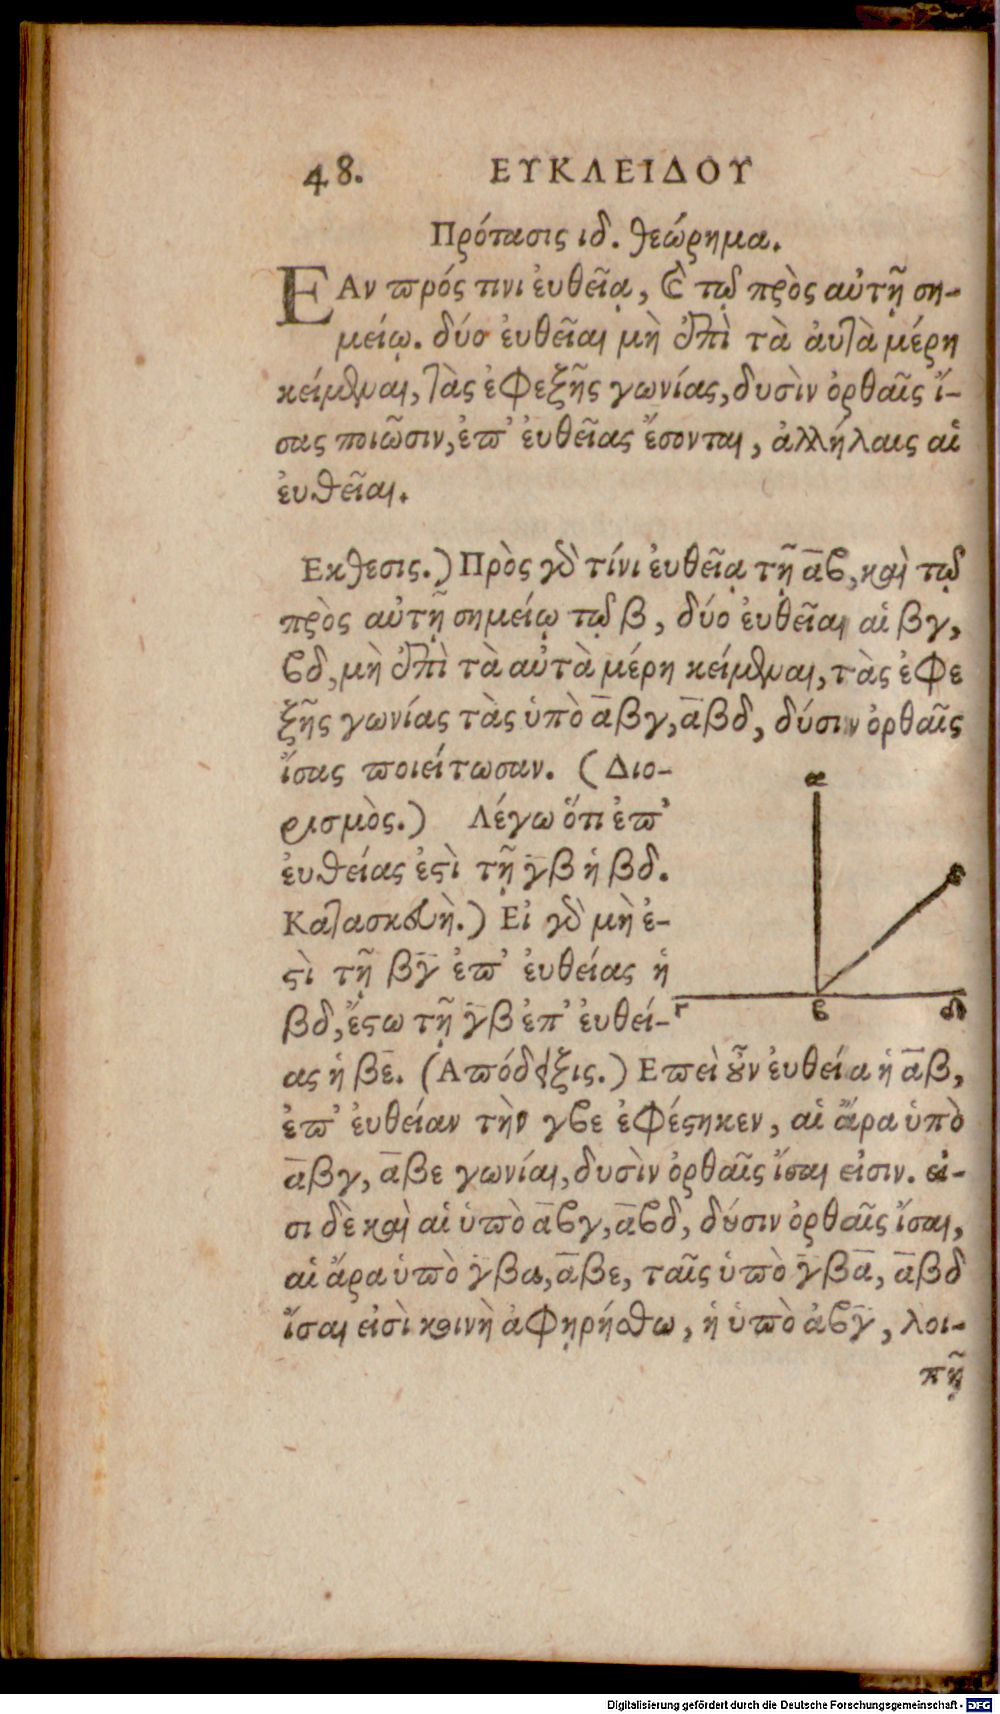 48. ΕΥΚΛΕΙΔΟΥ
Πρότασις ιδ. θεώρημα.
ΕΑν πρός τινι ἐυθεῖᾳ, καὶ τῷ πρὸς αὐτῇ ση-
μείῳ. δύο ἐυθεῖαι μὴ ἐπὶ τὰ ἀυτὰ μέρη
κείμεναι, τὰς ἐφεξῆς γωνίας, δυσὶν ὀρθαῖς ἴ-
σας ποιῶσιν, ἐπ' ἐυθεῖας ἔσονται, ἀλλήλαις αἱ
ἐυθεῖαι.
Εκθεσις.) Πρὸς γὰρ τίνι ἐυθεῖᾳ τῇ α̅ϐ, καὶ τῷ
πρὸς αὐτῇ σημείῳ τῷ β, δύο ἐυθεῖαι αἱ βγ,
ϐδ, μὴ ἐπὶ τὰ αὐτὰ μέρη κείμεναι, τὰς ἐφε
ξῆς γωνίας τὰς ὑπὸ α̅βγ, α̅βδ, δύσιν ὀρθαῖς
ἴσας ποιείτωσαν. (Διο-
ρισμὸς.) Λέγω ὅτι ἐπ'
ἐυθείας ἐστὶ τῇ γ̅β ἡ βδ.
Κατασκευὴ.) Εἰ γὰρ μὴ ἐ-
στὶ τῇ βγ̅ ἐπ' ἐυθείας ἡ
βδ, ἔστω τῇ γ̅β ἐπ' ἐυθεί-
ας ἡ βε̅. (Απόδειξις.) Επεὶ οὖν ἐυθεία ἡ α̅β,
ἐπ' ἐυθείαν τὴν γϐε ἐφέστηκεν, αἱ ἄρα ὑπὸ
α̅βγ, α̅βε γωνίαι, δυσὶν ὀρθαῖς ἴσαι εἰσιν. εἰ-
σι δὲ καὶ αἱ ὑπὸ α̅ϐγ, α̅ϐδ, δύσιν ὀρθαῖς ἴσαι,
αἱ ἄρα ὑπὸ γ̅βα, α̅βε, ταῖς ὑπὸ γ̅βα̅, α̅βδ
ἴσαι εἰσὶ κοινὴ ἀφῃρήσθω, ἡ ὑπὸ ἀϐγ̅, λοι-
πῇ
α
ε
γ ϐ δ
Digitalisierung gefördert durch die Deutsche Forschungsgemeinschaft - DFG